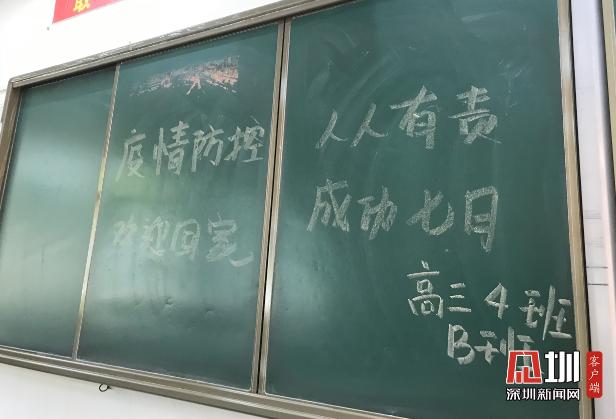 疫情防控
欢迎回家
人人有责
成功七日
高三4班
B班
圳
深圳新闻网
客户端